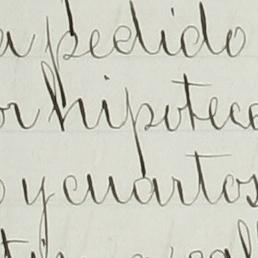 a pedido
or hipoteca
o y cuartos